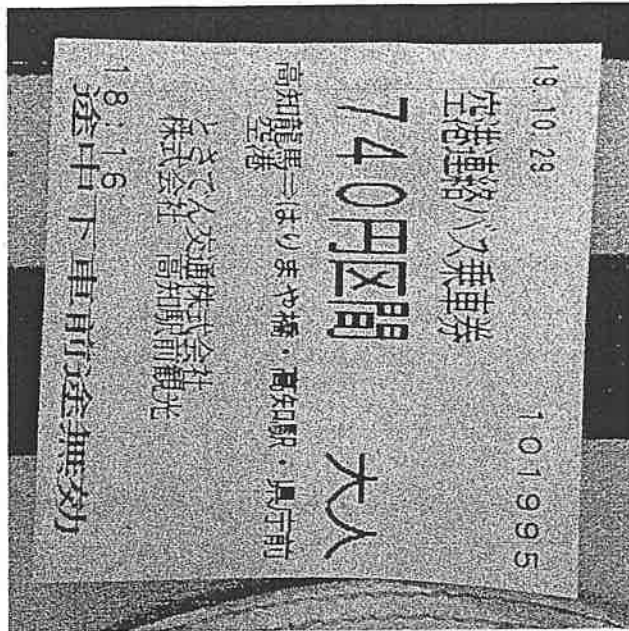 19.10.29 101995
空港連絡バス乗車券
740円区間 大人
高知龍馬空港⇔はりまや橋・高知駅・県庁前
とさでん交通株式会社
株式会社 高知駅前観光
18:16
途中下車前途無効